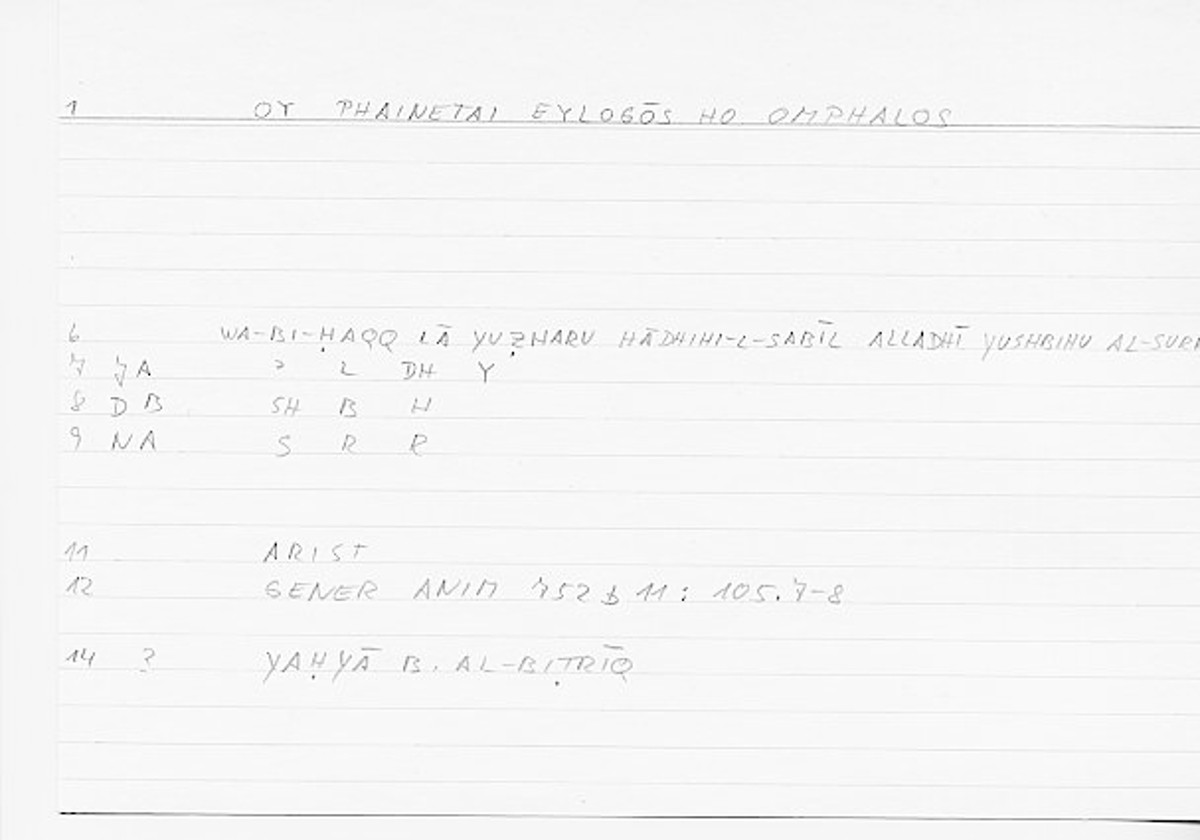 1 OY PHAINETAI EYLOGŌS HO OMPHALOS
6 WA-BI-ḤAQQ LĀ YUẒHARU HĀDHIHI-L-SABĪL ALLADHĪ YUSHBIHU AL-SURR
7 JA ʾ L DH Y
8 DB SH B H
9 NA S R R
11 ARIST
12 GENER ANIM 752 b 11 : 105.7-8
14 ? YAḤYĀ B. AL-BIṬRĪQ